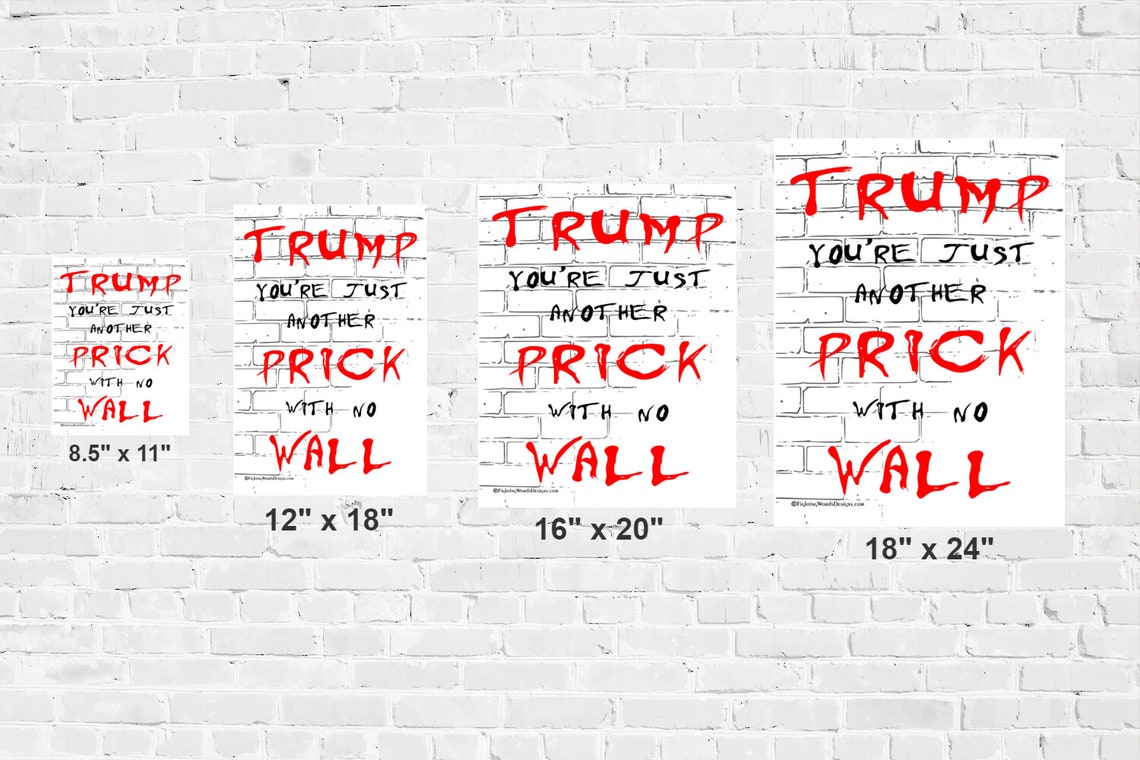 TRUMP
YOU'RE JUST
ANOTHER
PRICK
WITH NO
WALL
8.5" x 11"
TRUMP
YOU'RE JUST
ANOTHER
PRICK
WITH NO
WALL
©FightingWordsDesigns.com
12" x 18"
TRUMP
YOU'RE JUST
ANOTHER
PRICK
WITH NO
WALL
©FightingWordsDesigns.com
16" x 20"
TRUMP
YOU'RE JUST
ANOTHER
PRICK
WITH NO
WALL
©FightingWordsDesigns.com
18" x 24"